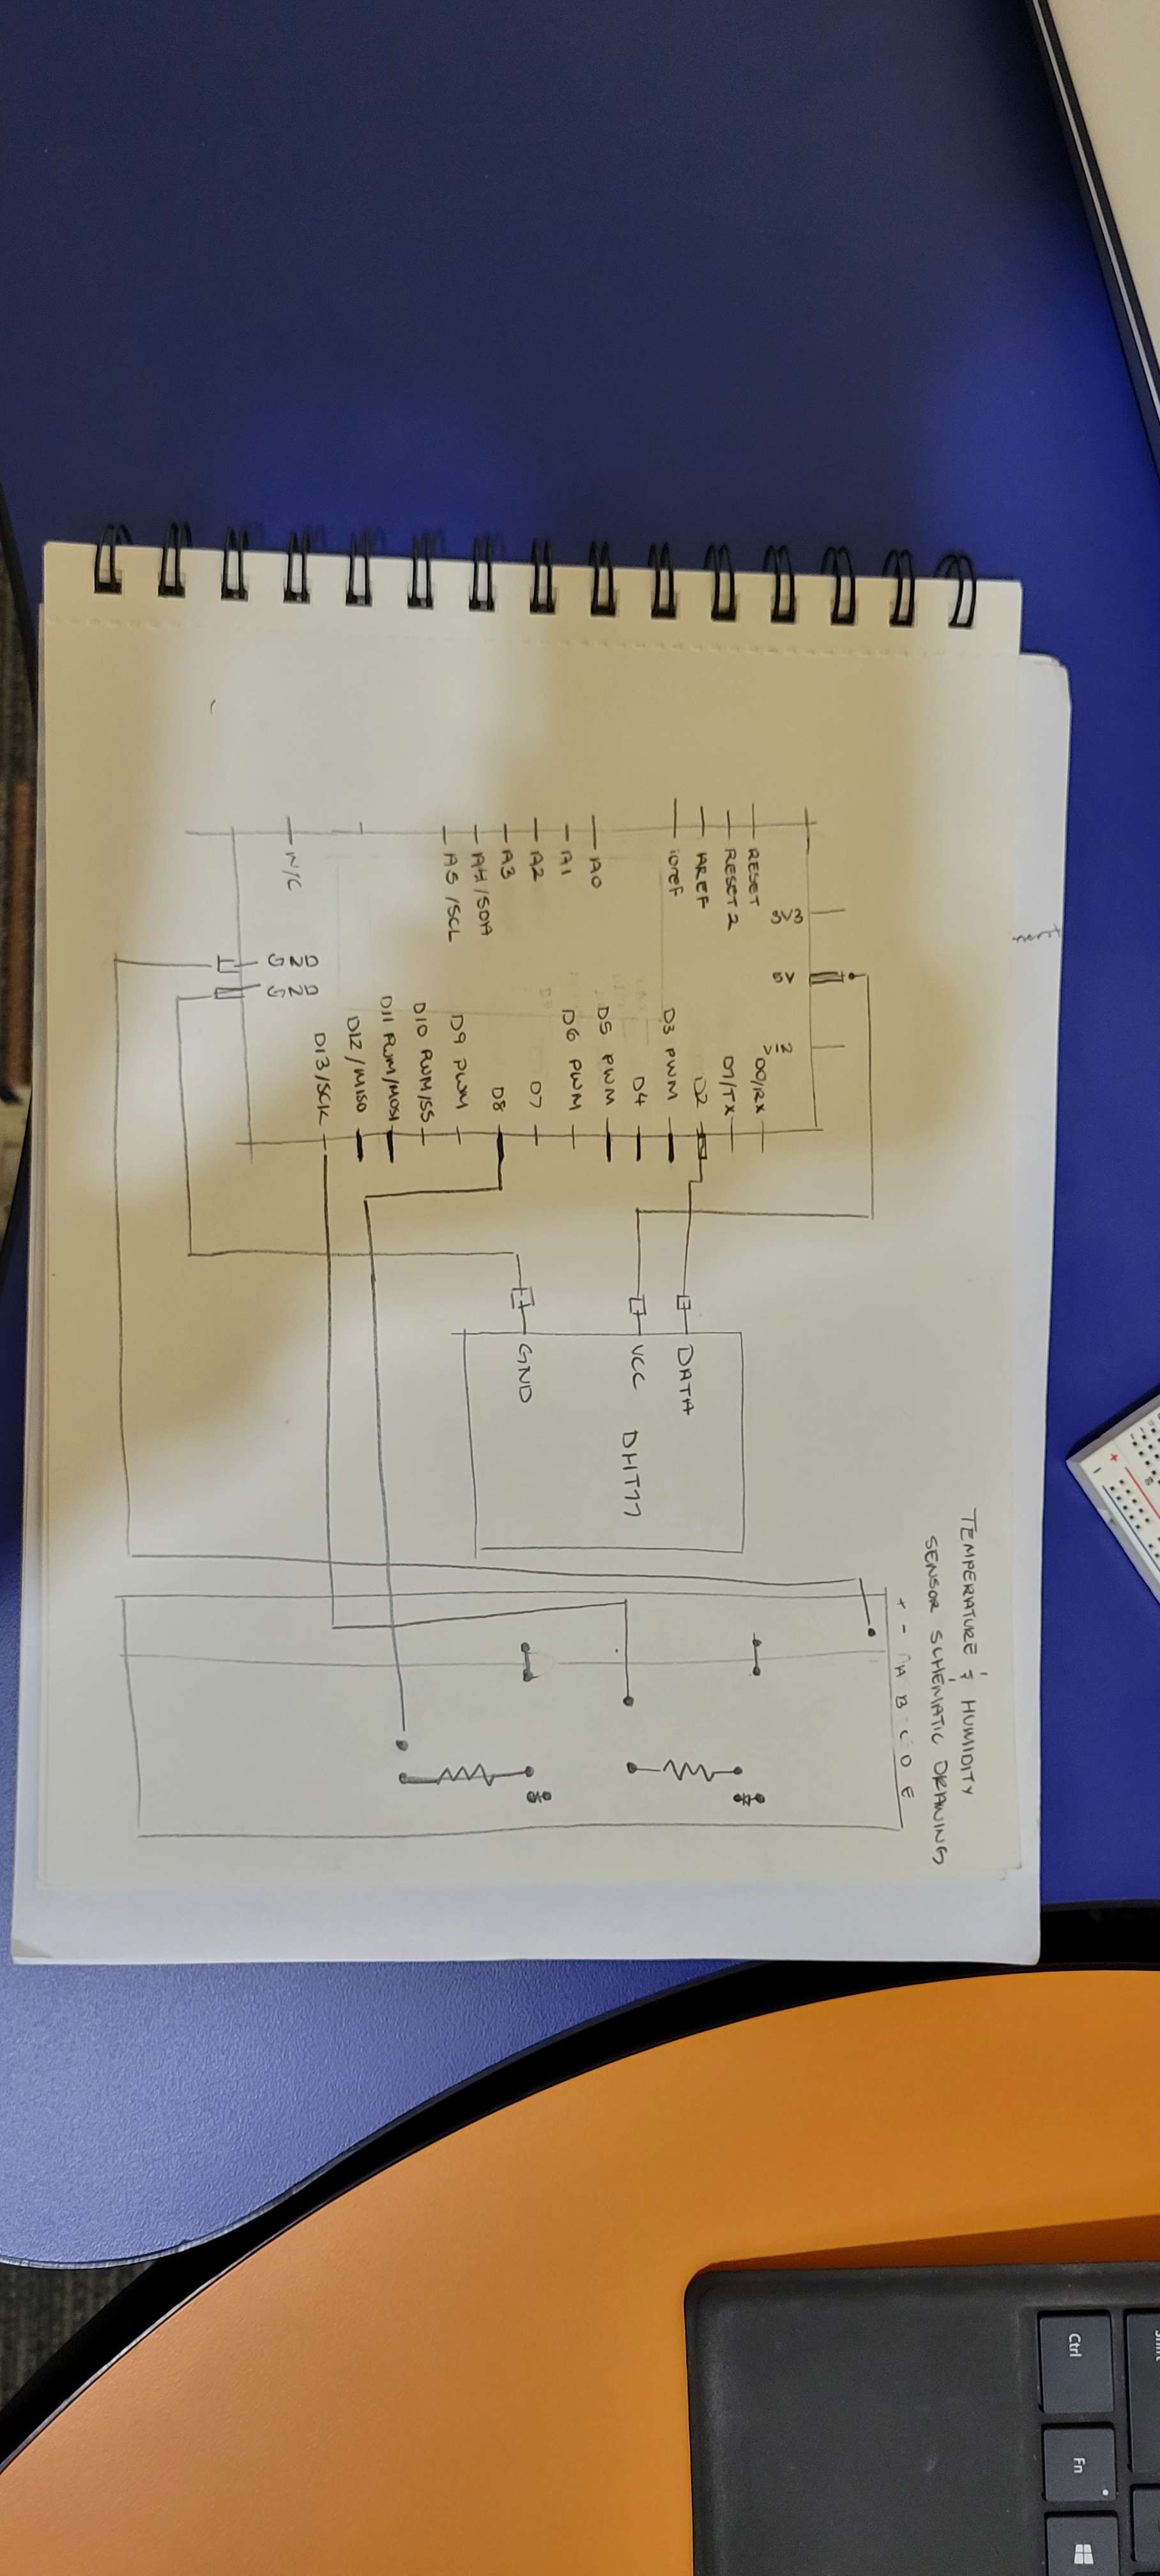 TEMPERATURE & HUMIDITY
SENSOR SCHEMATIC DRAWING
+ - A B C D E
3V3
5V
VIN
RESET
RESET 2
AREF
ioref
A0
A1
A2
A3
A4/SDA
A5/SCL
N/C
D0/RX
D1/TX
D2
D3 PWM
D4
D5 PWM
D6 PWM
D7
D8
D9 PWM
D10 PWM/SS
D11 PWM/MOSI
D12/MISO
D13/SCK
GND
GND
DATA
VCC
GND
DHT11
Ctrl
Fn